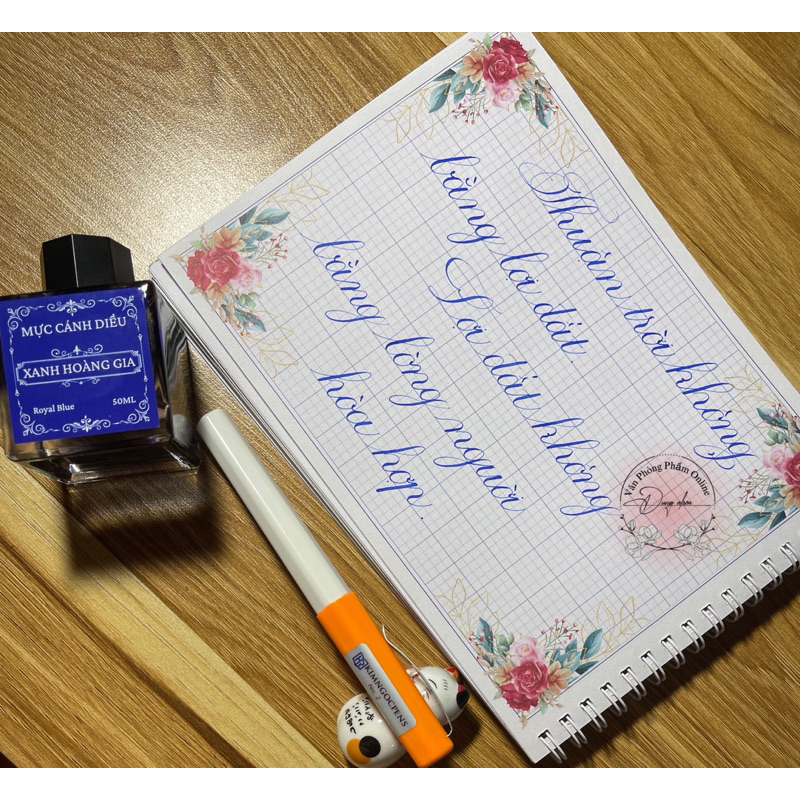 Thuận trời không
bằng lợi đất
Lợi đất không
bằng lòng người
hòa hợp.
MỰC CÁNH DIỀU
XANH HOÀNG GIA
Royal Blue 50ML
KIMNGOCPENS
Văn Phòng Phẩm Online